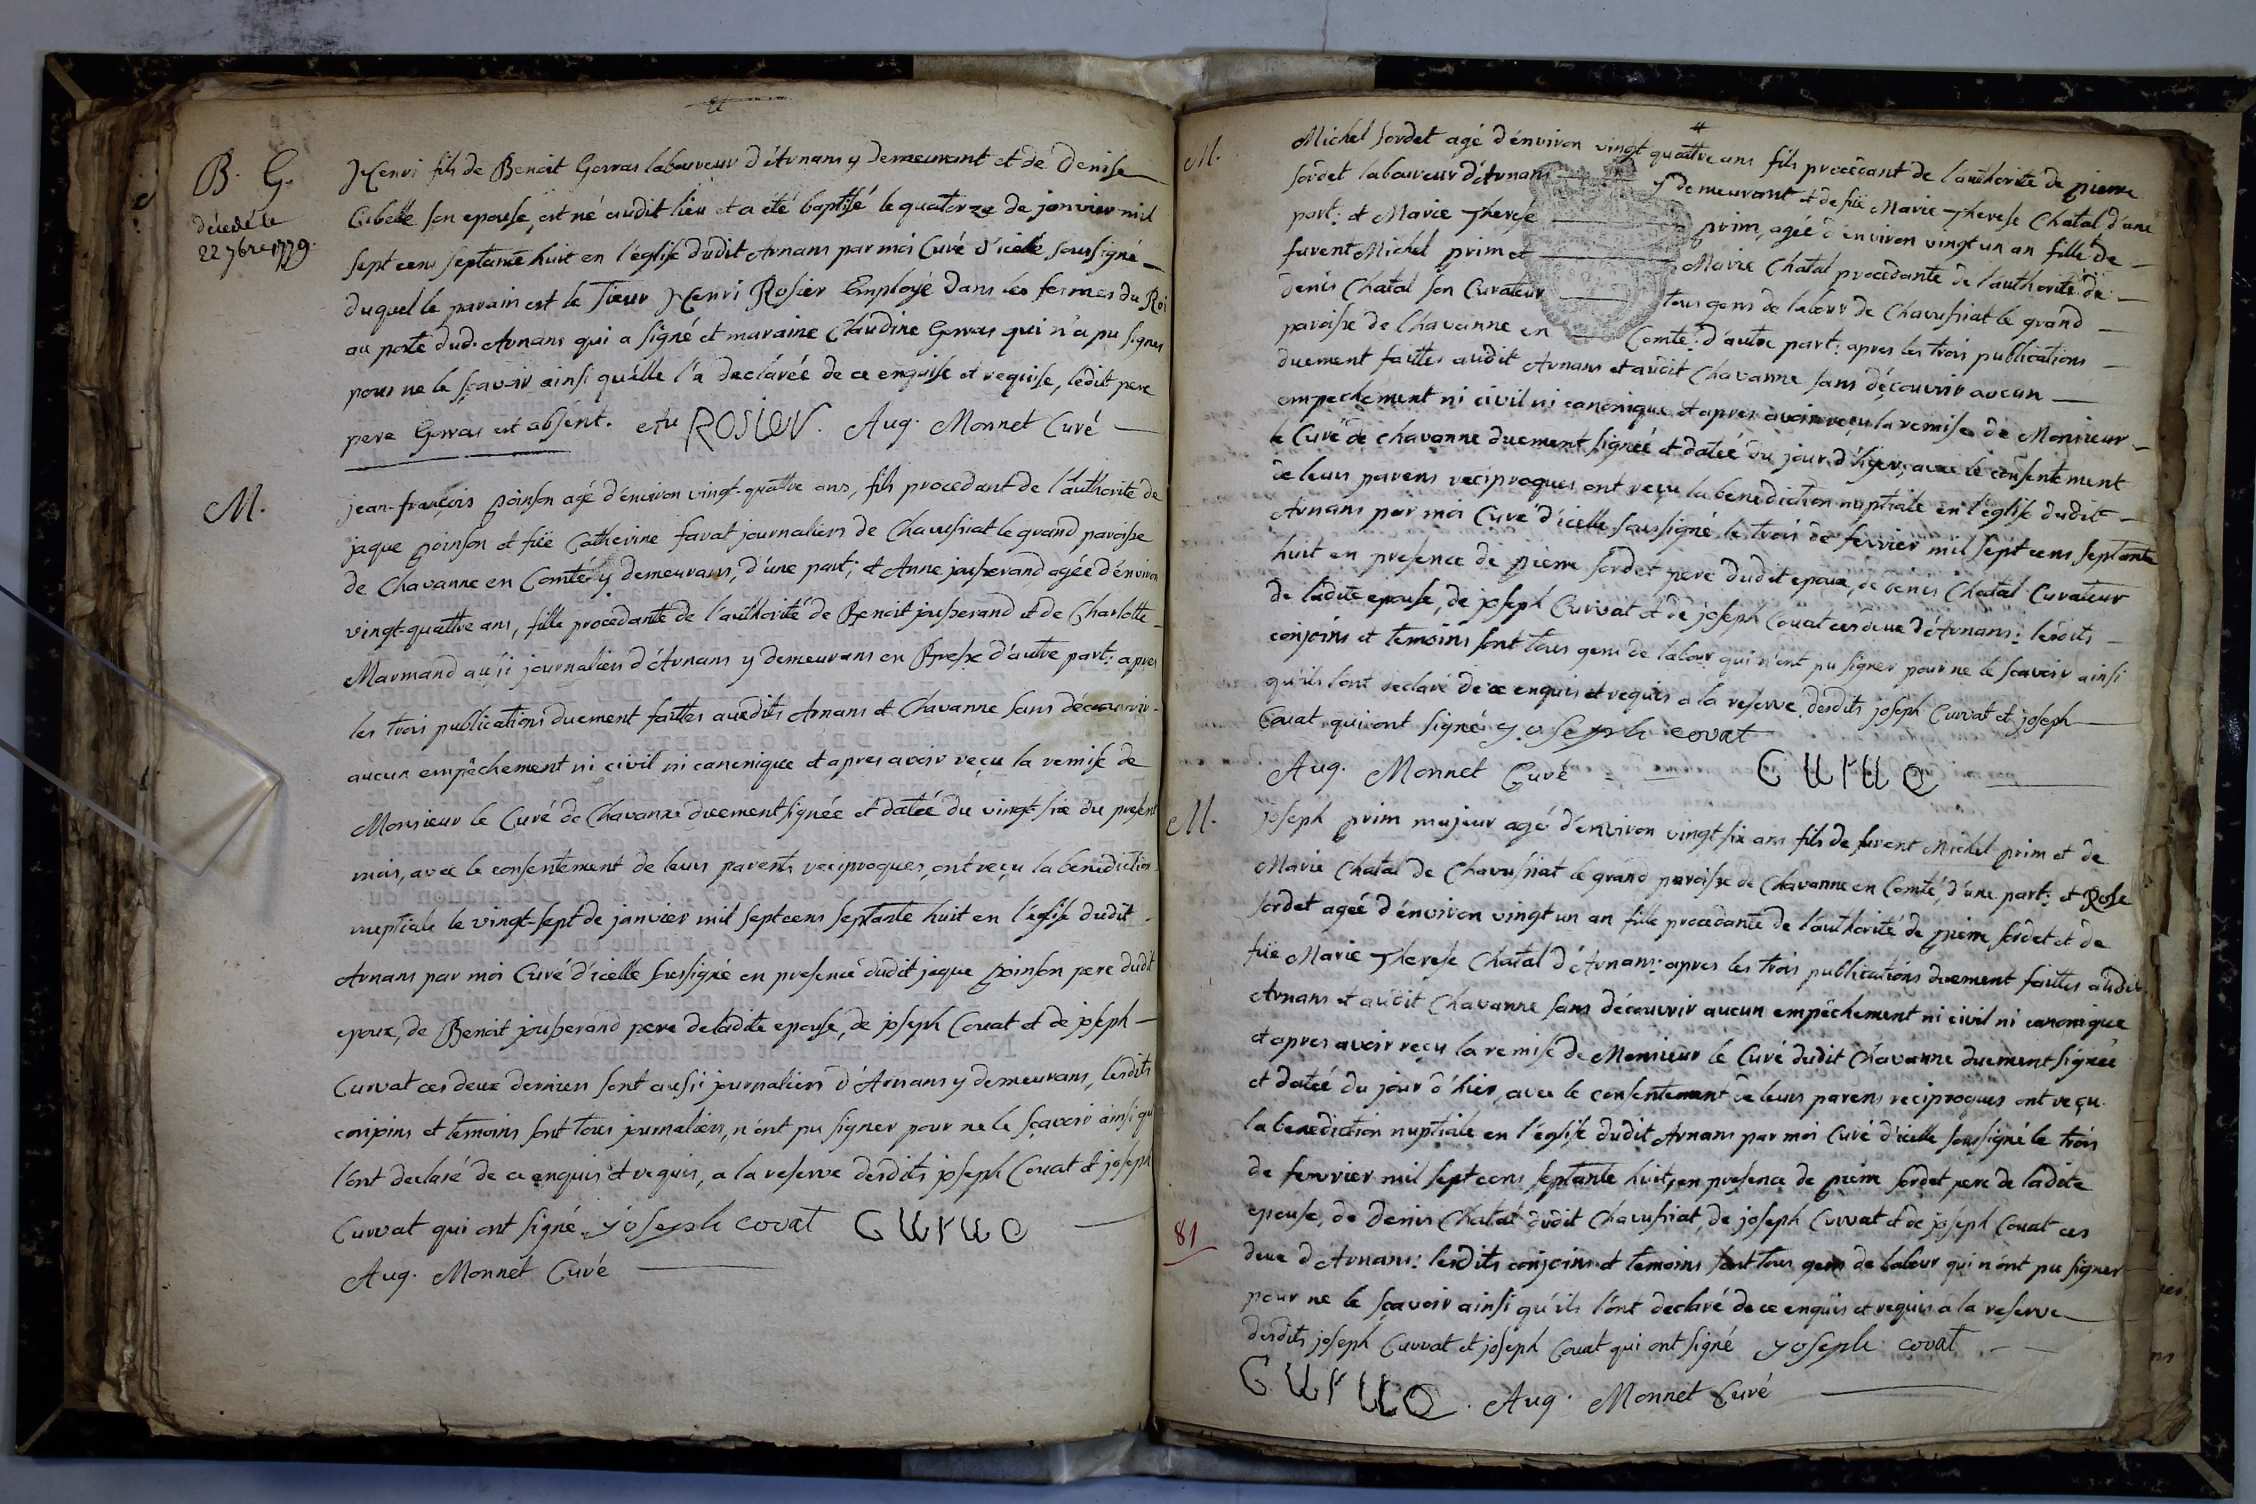 B. G.
décédé le
22 7bre 1779.
Henri fils de Benoit Gorras laboureur d'Arnans y demeurant et de Denise
Cubelle son epouse, est né audit lieu et a été baptisé le quatorze de janvier mil
sept cens septante huit en l'église dudit Arnans par moi Curé d'icelle soussigné
duquel le parain est le sieur Henri Rosier Employé dans les fermes du Roi
au poste dud. Arnans qui a signé et maraine Claudine Gorras qui n'a pu signer
pour ne le sçavoir ainsi quélle l'a declaréé de ce enquise et requise, ledit pere
pere Gorras est absént. ROSIER. Aug. Monnet Curé
M.
jean-françois poinson agé d'énviron vingt-quattre ans, fils procedant de l'authorité de
jaque poinson et füe Catherine favat journaliers de Chavussiat le grand paroisse
de Chavanne en Comté y demeurans, d'une part; et Anne jousserand agéé d'énviron
vingt-quattre ans, fille procedante de l'authorité de Benoit jousserand et de Charlotte
Marmand aussi journaliers d'Arnans y demeurans en Bresse d'autre part: apres
les trois publications duement faittes auxdits Arnans et Chavanne sans découvrir
aucun empêchement ni civil ni canonique et apres avoir reçu la remise de
Monsieur le Curé de Chavanne duement signéé et datéé du vingt-six du present
mois, avec le consentement de leurs parents reciproques, ont reçu la benediction
nuptiale le vingt-sept de janvier mil sept cens septante huit en l'église dudit
Arnans par moi Curé d'icelle soussigné en presencé dudit jaque poinson pere dudit
epoux, de Benoit jousserand pere de ladite epouse, de joseph Couat et de joseph
Curvat ces deux derniers sont aussi journaliers d'Arnans y demeurans, lesdits
conjoins et temoins sont tous journaliers, n'ont pu signer pour ne le sçavoir ainsi qu
l'ont declaré de ce enquis et requis, a la reserve desdits joseph Couat et joseph
Curvat qui ont signé. yoseph covat CURUA
Aug. Monnet Curé
M.
Michel sordet agé d'énviron vingt quattre ans fils procédant de l'authorité de pierre
sordet laboureur d'Arnans y demeurant et de füe Marie Therese Chatal d'une
part: et Marie Therese prim, agéé d'énviron vingt un an fille de
furent Michel prim et Marie Chatal procedante de l'authorité de
denis Chatal son Curateur tous gens de labour de Chavussiat le grand
paroisse de Chavanne en Comté: d'autre part: apres les trois publications
duement faittes audit Arnans et audit Chavanne sans découvrir aucun
empechement ni civil ni canonique et apres avoir reçu la remise de Monsieur
le Curé de Chavanne duement signéé et datéé du jour d'hier, avec le consentement
de leurs parens reciproques ont reçu la benediction nuptiale en l'église dudit
Arnans par moi Curé d'icelle soussigné le trois de fevrier mil sept cens septante
huit en presence de pierre sordet pere dudit epoux, de denis Chatal Curateur
de ladite epouse, de joseph Curvat et de joseph Couat ces deux d'Arnans: lesdits
conjoins et temoins sont tous gens de labour qui n'ont pu signer pour ne le sçavoir ainsi
qu'ils l'ont declaré de ce enquis et requis a la reserve desdits joseph Curvat et joseph
Couat qui ont signé yoseph covat
Aug. Monnet Curé CURUA
M.
joseph prim majeur agé d'énviron vingt-six ans fils de furent Michel prim et de
Marie Chatal de Chavussiat le grand paroisse de Chavanne en Comté, d'une part: et Rose
sordet agéé d'énviron vingt un an fille procedante de l'authorité de pierre sordet et de
füe Marie Therese Chatal d'Arnans: apres les trois publications duement faittes audit
Arnans et audit Chavanne sans découvrir aucun empêchement ni civil ni canonique
et apres avoir reçu la remise de Monsieur le Curé dudit Chavanne duement signéé
et datéé du jour d'hier, avec le consentement de leurs parens reciproques ont reçu
la benediction nuptiale en l'église dudit Arnans par moi Curé d'icelle soussigné le trois
de fevrier mil sept cens septante huit, en presence de pierre sordet pere de ladite
epouse, de Denis Chatal dudit Chavussiat, de joseph Curvat et de joseph Couat ces
deux d'Arnans: lesdits conjoins et temoins sont tous gens de labour qui n'ont pu signer
pour ne le sçavoir ainsi qu'ils l'ont declaré de ce enquis et requis a la reserve
desdits joseph Curvat et joseph Couat qui ont signé yoseph covat
CURUA. Aug. Monnet Curé
81